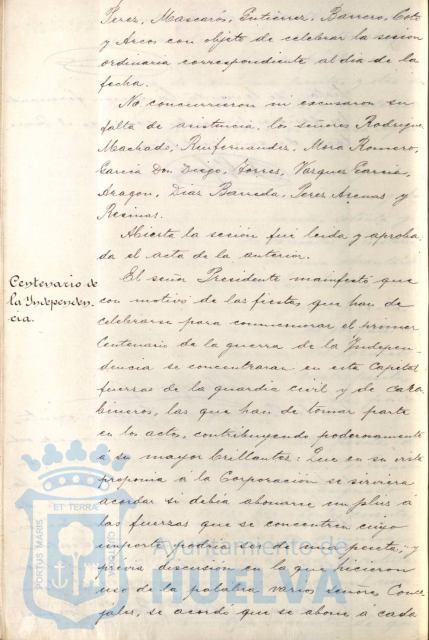 Perez, Mascarós, Gutierrez, Barrero, Coto
y Arcos con objeto de celebrar la sesion
ordinaria correspondiente al dia de la
fecha.
No concurrieron ni excusaron su
falta de asistencia, los señores Rodriguez
Machado, Ruifernandez, Mora Romero,
Garcia Don Diego, Torres, Vazquez Garcia,
Aragon, Diaz Barreda, Perez Arenas y
Resinas.
Abierta la sesión fué leida y aproba-
da el acta de la anterior.
Centenario de
la Independen-
cia.
El señor Presidente manifestó que
con motivo de las fiestas que han de
celebrarse para conmemorar el primer
Centenario de la guerra de la Indepen-
dencia se concentraran en esta Capital
fuerzas de la guardia civil y de cara-
bineros, las que han de tomar parte
en los actos, contribuyendo poderosamente
á su mayor brillantez: Que en su vista
proponia á la Corporación se sirviera
acordar si debia abonarse un plus á
las fuerzas que se concentren cuyo
importe podria ser de una peseta; y
previa discusión en la que hicieron
uso de la palabra varios señores Conce-
jales, se acordó que se abone á cada
PORTUS MARIS ET TERRAE CUSTODIO
Ayuntamiento de
HUELVA